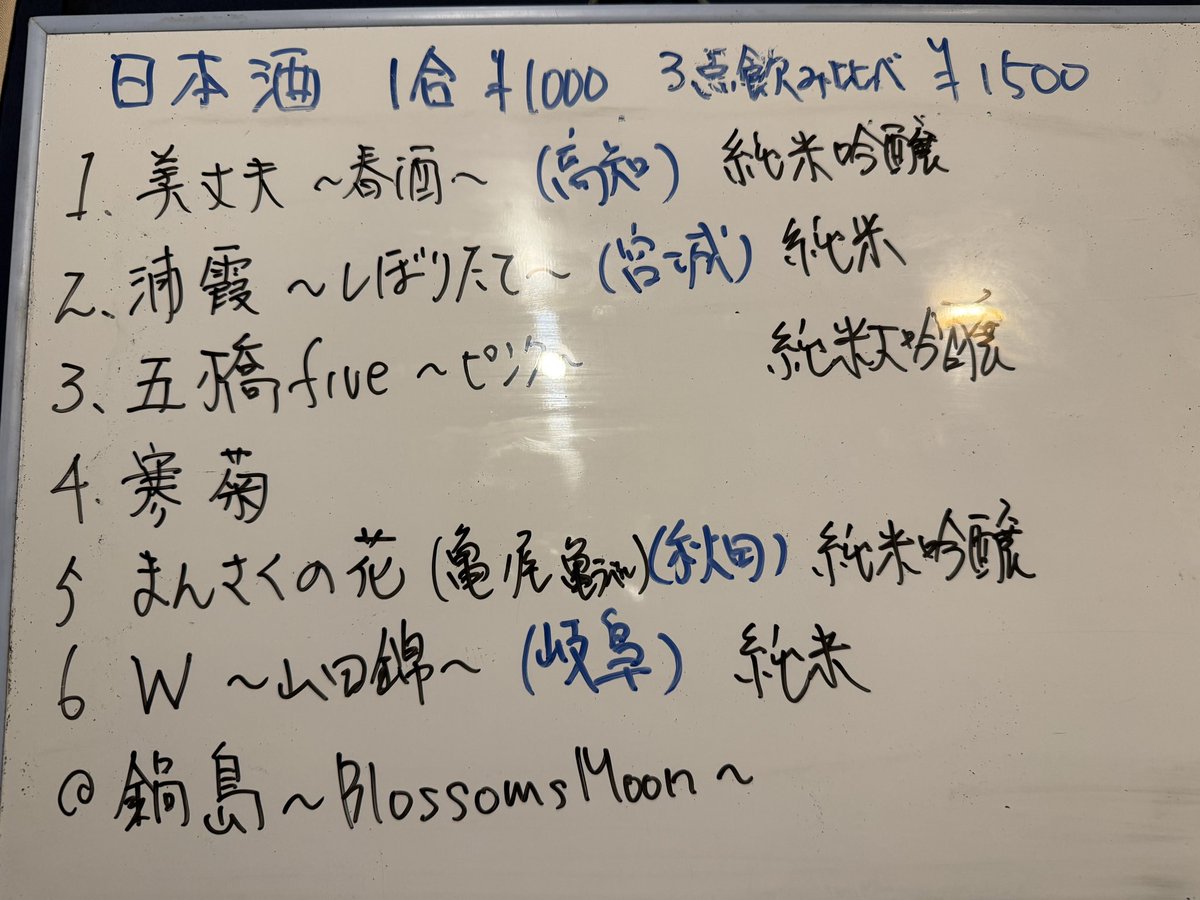 日本酒 1合 ¥1000 3点飲み比べ ¥1500
1. 美丈夫 ~春酒~ (高知) 純米吟醸
2、浦霞 ~しぼりたて~ (宮城) 純米
3、五橋five ~ピンク~ 純米大吟醸
4. 寒菊
5 まんさくの花 (亀尾亀) (秋田) 純米吟醸
6 W ~山田錦~ (岐阜) 純米
@ 鍋島 ~BlossomsMoon~